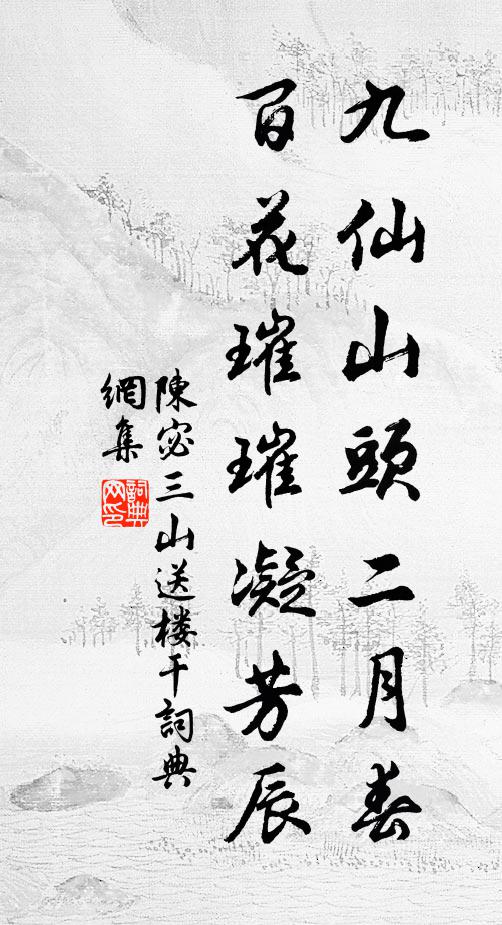 九仙山頭二月春
百花璀璀凝芳辰
陳宓三山送楼干詞典
網集
詞典网印